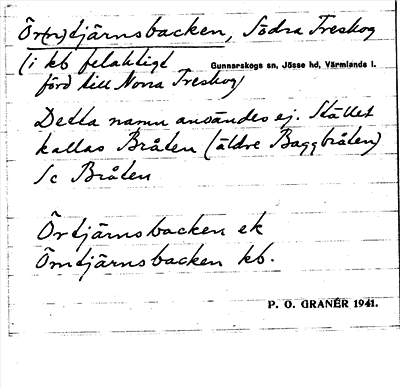 Ör(n)tjärnsbacken, Södra Treskog
(i kb felaktigt Gunnarskogs sn, Jösse hd, Värmlands l.
förd till Norra Treskog)
Detta namn användes ej. Stället
kallas Bråten (äldre Baggbråten)
Sc Bråten
Örtjärnsbacken ek
Örntjärnsbacken kb.
P. O. GRANÉR 1941.